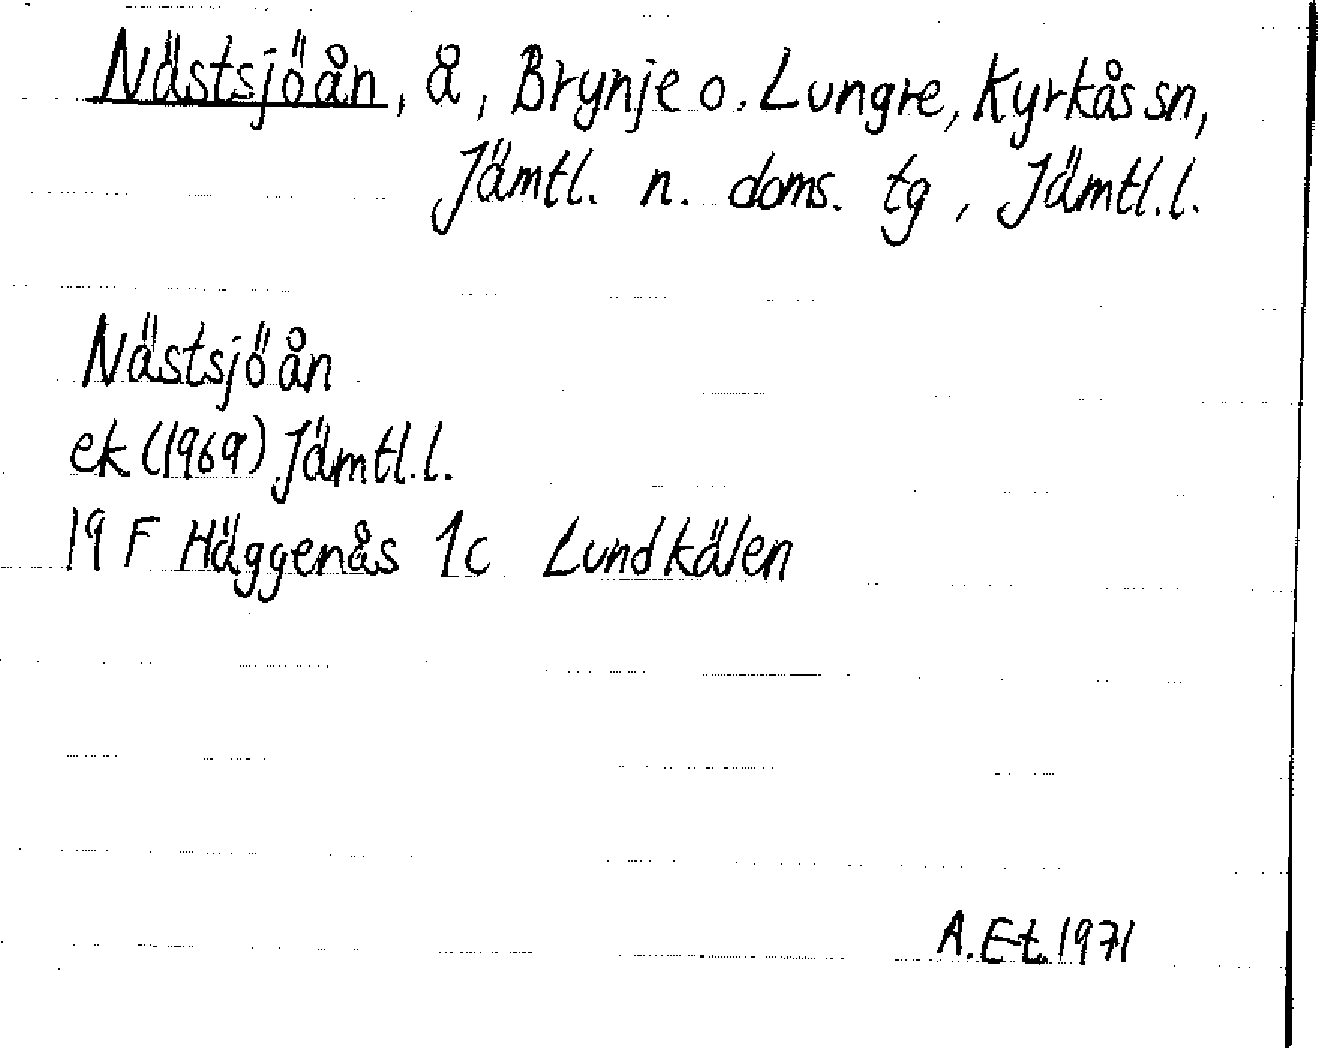 Nästsjöån, å, Brynje o. Lungre, Kyrkås sn,
Jämtl. n. doms. tg, Jämtl.l.
Nästsjöån
ek (1969) Jämtl.l.
19 F Häggenås 1c Lundkälen
A.Et.1971